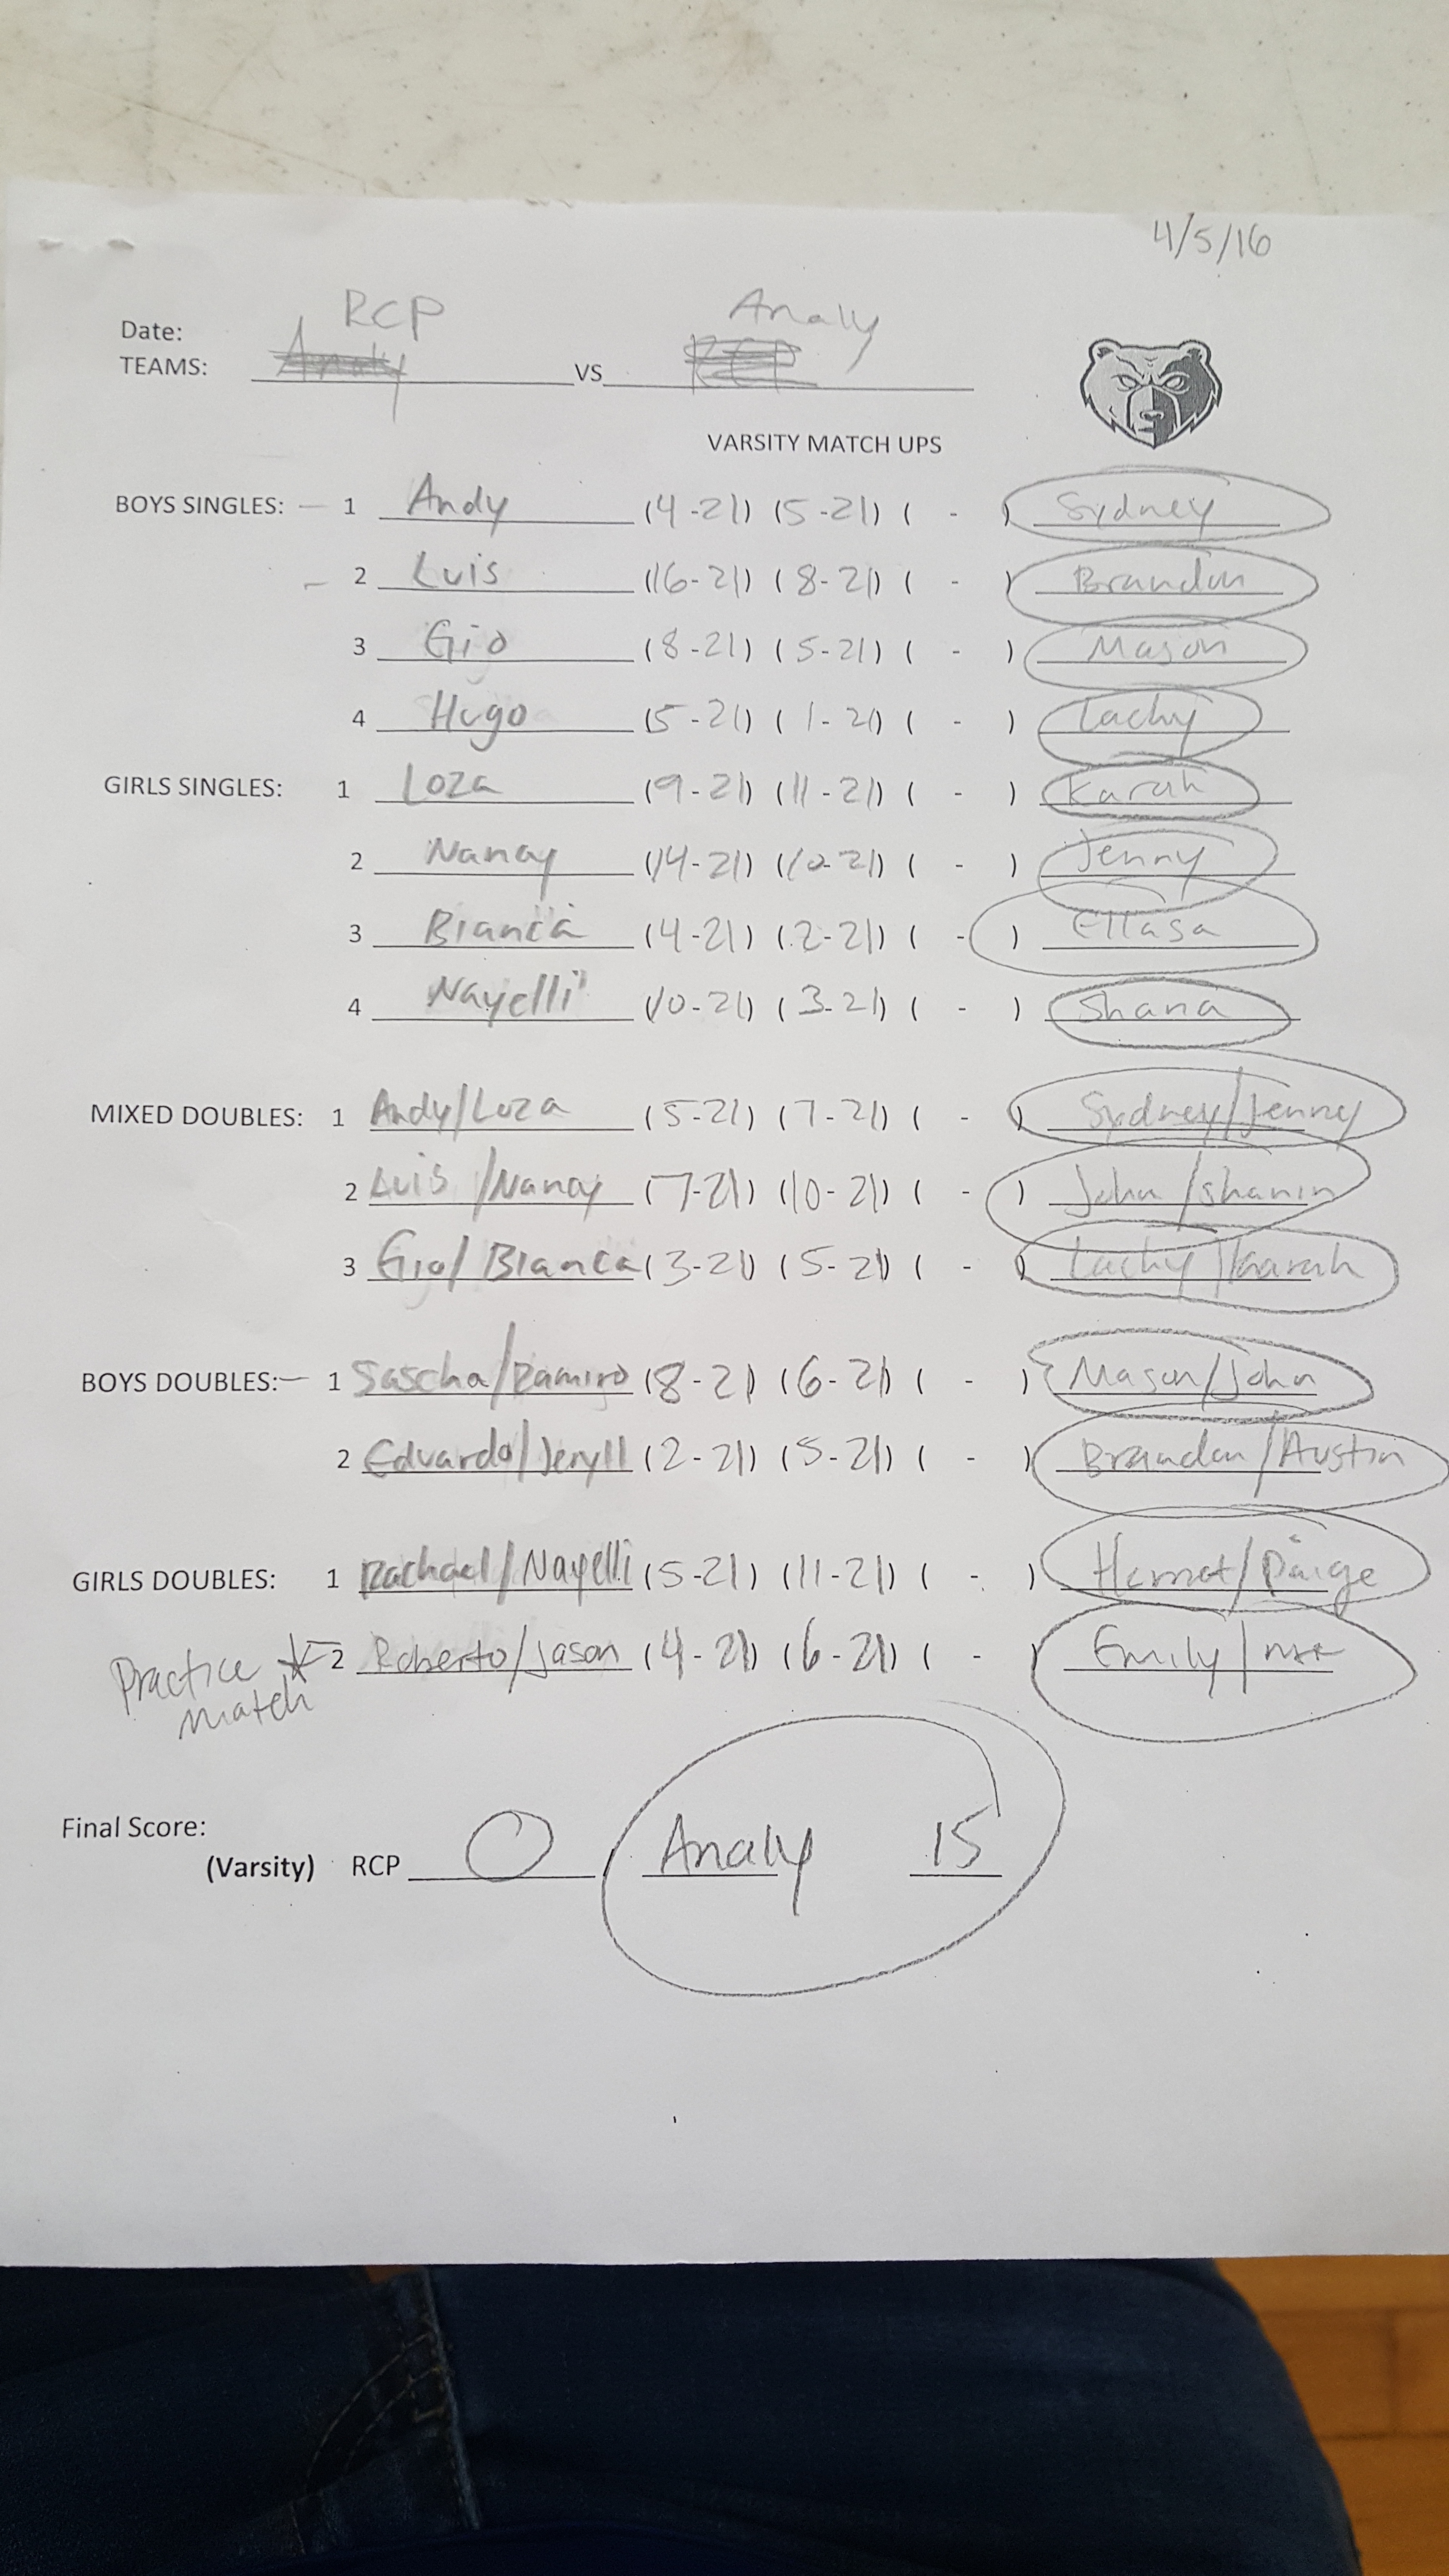 4/5/16
RCP Analy
Date:
TEAMS: Analy VS RCP
VARSITY MATCH UPS
BOYS SINGLES: 1 Andy (4-21) (5-21) ( - ) Sydney
2 Luis (16-21) (8-21) ( - ) Brandon
3 Gio (8-21) (5-21) ( - ) Mason
4 Hugo (5-21) (1-21) ( - ) Lachy
GIRLS SINGLES: 1 Loza (9-21) (11-21) ( - ) Karah
2 Nancy (14-21) (10-21) ( - ) Jenny
3 Bianca (4-21) (2-21) ( - )
4 Nayelli (10-21) (3-21) ( - ) Shana
MIXED DOUBLES: 1 Andy/Loza (5-21) (7-21) ( - ) Sydney/Jenny
2 Luis/Nancy (7-21) (10-21) ( - ) John/
3 Gio/Bianca (3-21) (5-21) ( - ) Lachy/Karah
BOYS DOUBLES: 1 Sascha/Ramiro (8-21) (6-21) ( - ) Mason/John
2 Eduardo/Jeryll (2-21) (5-21) ( - ) Brandon/Austin
GIRLS DOUBLES: 1 Rachael/Nayelli (5-21) (11-21) ( - ) /Paige
Practice match * 2 Roberto/Jason (4-21) (6-21) ( - ) Emily/
Final Score:
(Varsity) RCP 0 Analy 15